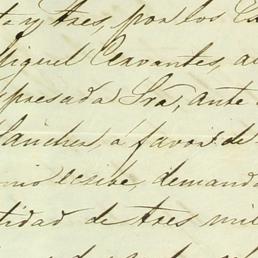 te y tres, por los Es
Miguel Cervantes, a
presada Sra, ante
Sanchez, a favor de
mo recive, demand
tidad de tres mil